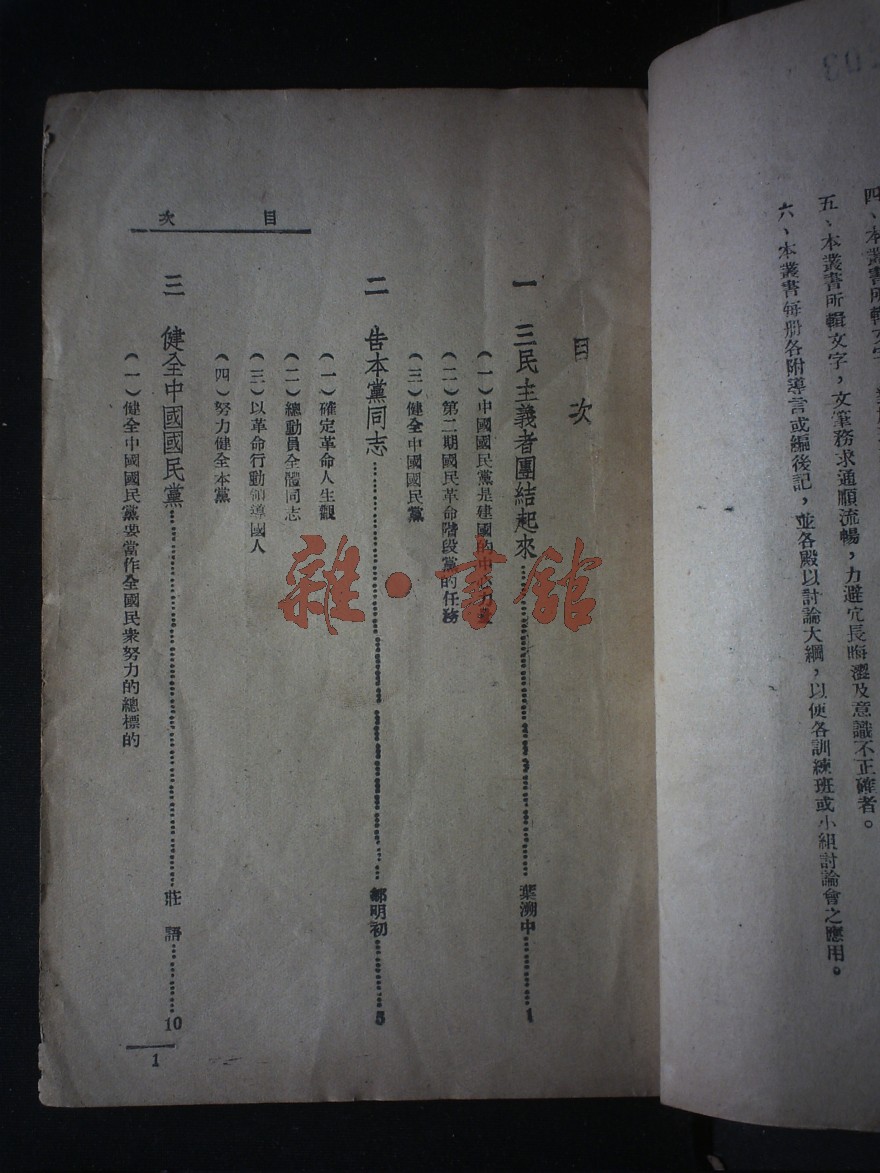 四、本叢書所輯文字，
五、本叢書所輯文字，文筆務求通順流暢，力避冗長晦澀及意識不正確者。
六、本叢書每册各附導言或編後記，並各殿以討論大綱，以便各訓練班或小組討論會之應用。
目次
目次
一 三民主義者團結起來……葉溯中……1
（一）中國國民黨是建國的中心力量
（二）第二期國民革命階段黨的任務
（三）健全中國國民黨
二 告本黨同志……鄒明初……5
（一）確定革命人生觀
（二）總動員全體同志
（三）以革命行動領導國人
（四）努力健全本黨
三 健全中國國民黨……莊語……10
（一）健全中國國民黨要當作全國民衆努力的總標的
1
雜·書館